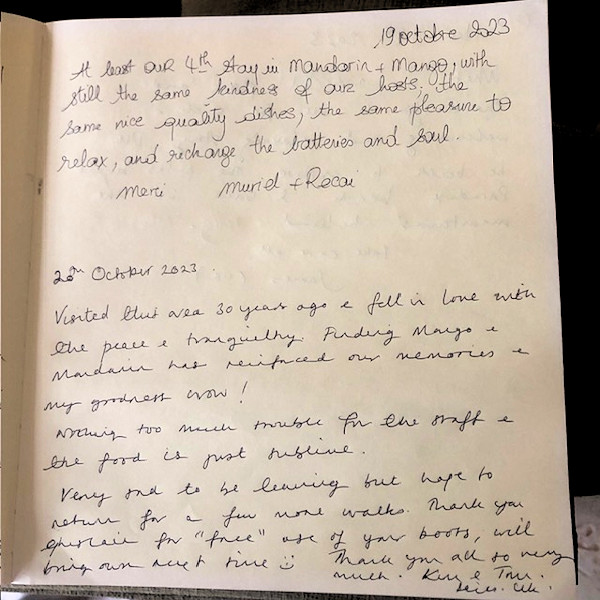 19 octobre 2023
At least our 4th stay in Mandarin + Mango, with
still the same kindness of our hosts, the
same nice quality dishes, the same pleasure to
relax, and recharge the batteries and soul.
Merci Muriel + Recai
20th October 2023.
Visited this area 30 years ago & fell in love with
the peace & tranquillity. Finding Mango &
Mandarin has reinforced our memories &
my goodness wow!
Nothing too much trouble for the staff &
the food is just sublime.
Very sad to be leaving but hope to
return for a few more walks. Thank you
for "free" use of your boots, will
bring own next time Thank you all so very
much.